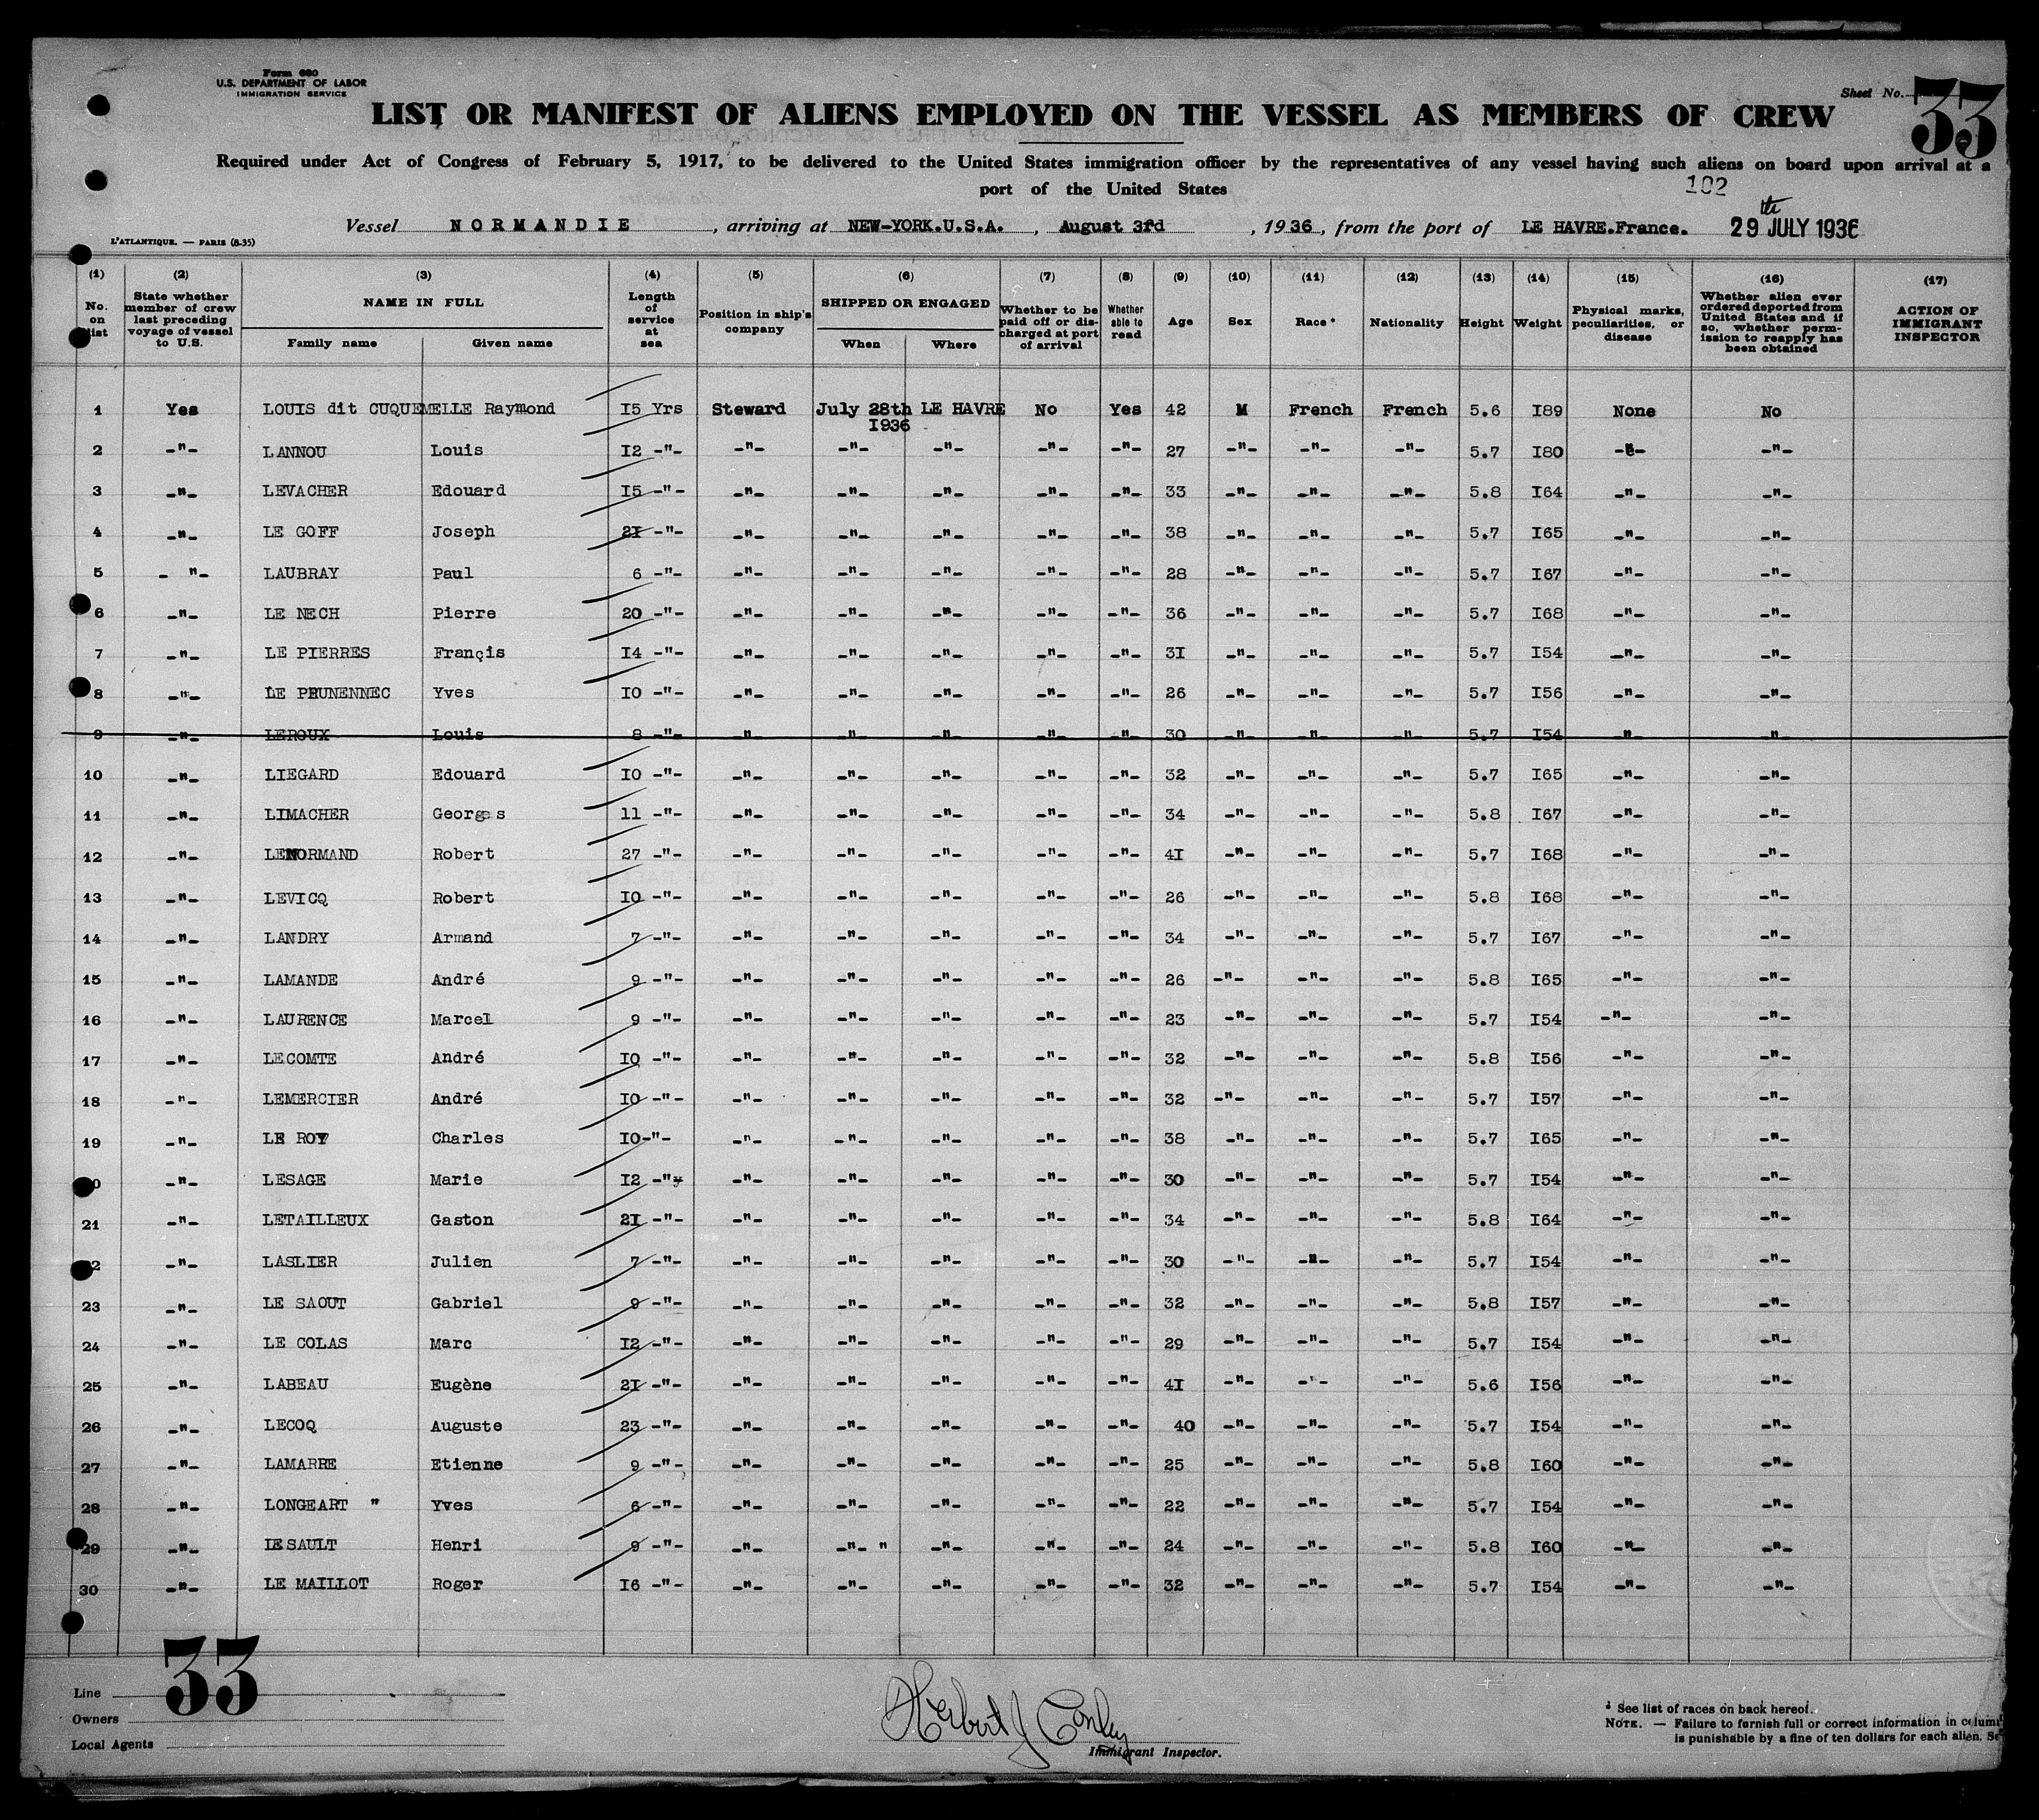 Form 680
U.S. DEPARTMENT OF LABOR
IMMIGRATION SERVICE
Sheet No. 33
LIST OR MANIFEST OF ALIENS EMPLOYED ON THE VESSEL AS MEMBERS OF CREW
Required under Act of Congress of February 5, 1917, to be delivered to the United States immigration officer by the representatives of any vessel having such aliens on board upon arrival at a
port of the United States
102
Vessel NORMANDIE, arriving at NEW-YORK.U.S.A., August 3rd, 1936, from the port of LE HAVRE.France. 29 th JULY 1936
L'ATLANTIQUE. — PARIS (8-35)
(1) (2) (3) (4) (5) (6) (7) (8) (9) (10) (11) (12) (13) (14) (15) (16) (17)
No. on list
State whether member of crew last preceding voyage of vessel to U.S.
NAME IN FULL
Family name Given name
Length of service at sea
Position in ship's company
SHIPPED OR ENGAGED
When Where
Whether to be paid off or discharged at port of arrival
Whether able to read
Age
Sex
Race *
Nationality
Height
Weight
Physical marks, peculiarities, or disease
Whether alien ever ordered deported from United States and if so, whether permission to reapply has been obtained
ACTION OF IMMIGRANT INSPECTOR
1 Yes LOUIS dit CUQUEMELLE Raymond I5 Yrs Steward July 28th I936 LE HAVRE No Yes 42 M French French 5.6 I89 None No
2 -"- LANNOU Louis I2 -"- -"- -"- -"- -"- -"- 27 -"- -"- -"- 5.7 I80 -"- -"-
3 -"- LEVACHER Edouard I5 -"- -"- -"- -"- -"- -"- 33 -"- -"- -"- 5.8 I64 -"- -"-
4 -"- LE GOFF Joseph 2I -"- -"- -"- -"- -"- -"- 38 -"- -"- -"- 5.7 I65 -"- -"-
5 - "- LAUBRAY Paul 6 -"- -"- -"- -"- -"- -"- 28 -"- -"- -"- 5.7 I67 -"- -"-
6 -"- LE NECH Pierre 20 -"- -"- -"- -"- -"- -"- 36 -"- -"- -"- 5.7 I68 -"- -"-
7 -"- LE PIERRES Françis I4 -"- -"- -"- -"- -"- -"- 3I -"- -"- -"- 5.7 I54 -"- -"-
8 -"- LE PRUNENNEC Yves I0 -"- -"- -"- -"- -"- -"- 26 -"- -"- -"- 5.7 I56 -"- -"-
9 -"- LEROUX Louis 8 -"- -"- -"- -"- -"- -"- 30 -"- -"- -"- 5.7 I54 -"- -"-
10 -"- LIEGARD Edouard I0 -"- -"- -"- -"- -"- -"- 32 -"- -"- -"- 5.7 I65 -"- -"-
11 -"- LIMACHER Georges 11 -"- -"- -"- -"- -"- -"- 34 -"- -"- -"- 5.8 I67 -"- -"-
12 -"- LENORMAND Robert 27 -"- -"- -"- -"- -"- -"- 4I -"- -"- -"- 5.7 I68 -"- -"-
13 -"- LEVICQ Robert I0 -"- -"- -"- -"- -"- -"- 26 -"- -"- -"- 5.8 I68 -"- -"-
14 -"- LANDRY Armand 7 -"- -"- -"- -"- -"- -"- 34 -"- -"- -"- 5.7 I67 -"- -"-
15 -"- LAMANDE André 9 -"- -"- -"- -"- -"- -"- 26 -"- -"- -"- 5.8 I65 -"- -"-
16 -"- LAURENCE Marcel 9 -"- -"- -"- -"- -"- -"- 23 -"- -"- -"- 5.7 I54 -"- -"-
17 -"- LECOMTE André I0 -"- -"- -"- -"- -"- -"- 32 -"- -"- -"- 5.8 I56 -"- -"-
18 -"- LEMERCIER André I0 -"- -"- -"- -"- -"- -"- 32 -"- -"- -"- 5.7 I57 -"- -"-
19 -"- LE ROY Charles I0-"- -"- -"- -"- -"- -"- 38 -"- -"- -"- 5.7 I65 -"- -"-
0 -"- LESAGE Marie I2 -"- -"- -"- -"- -"- -"- 30 -"- -"- -"- 5.7 I54 -"- -"-
21 -"- LETAILLEUX Gaston 2I -"- -"- -"- -"- -"- -"- 34 -"- -"- -"- 5.8 I64 -"- -"-
2 -"- LASLIER Julien 7 -"- -"- -"- -"- -"- -"- 30 -"- -"- -"- 5.7 I54 -"- -"-
23 -"- LE SAOUT Gabriel 9 -"- -"- -"- -"- -"- -"- 32 -"- -"- -"- 5.8 I57 -"- -"-
24 -"- LE COLAS Marc I2 -"- -"- -"- -"- -"- -"- 29 -"- -"- -"- 5.7 I54 -"- -"-
25 -"- LABEAU Eugène 2I -"- -"- -"- -"- -"- -"- 4I -"- -"- -"- 5.6 I56 -"- -"-
26 -"- LECOQ Auguste 23 -"- -"- -"- -"- -"- -"- 40 -"- -"- -"- 5.7 I54 -"- -"-
27 -"- LAMARRE Etienne 9 -"- -"- -"- -"- -"- -"- 25 -"- -"- -"- 5.8 I60 -"- -"-
28 -"- LONGEART " Yves 6 -"- -"- -"- -"- -"- -"- 22 -"- -"- -"- 5.7 I54 -"- -"-
29 -"- LESAULT Henri 9 -"- -"- -"- " -"- -"- -"- 24 -"- -"- -"- 5.8 I60 -"- -"-
30 -"- LE MAILLOT Roger I6 -"- -"- -"- -"- -"- -"- 32 -"- -"- -"- 5.7 I54 -"- -"-
33
Line
Owners
Local Agents
Herbert J Conley
Immigrant Inspector.
* See list of races on back hereof.
NOTE. — Failure to furnish full or correct information in colum
is punishable by a fine of ten dollars for each alien. Se